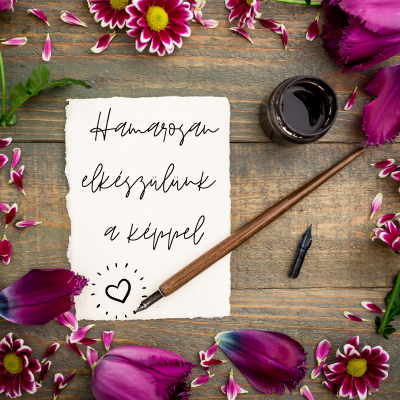 Hamarosan
elkészülünk
a képpel